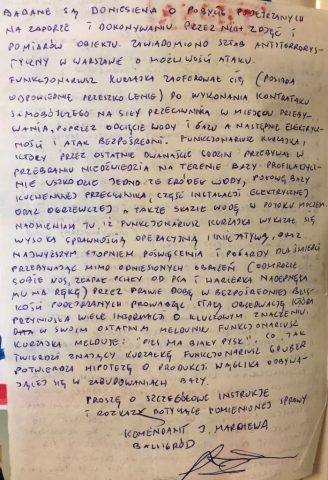 BADANE SĄ DONIESIENIA O POBYCIE PODEJRZANYCH
NA ZAPORZE I DOKONYWANIU PRZEZ NICH ZDJĘĆ I
POMIARÓW OBIEKTU. ZAWIADOMIONO SZTAB ANTYTERRORYS-
TYCZNY W WARSZAWIE O MOŻLIWOŚCI ATAKU.
FUNKCJONARIUSZ KURZAJKA ZAOFEROWAŁ CIĘ (POSIADA
ODPOWIEDNIE PRZESZKOLENIE) DO WYKONANIA KONTRATAKU
SAMOBÓJCZEGO NA SIŁY PRZECIWNIKA W MIEJSCU PRZEBY-
WANIA, POPRZEZ ODCIĘCIE WODY I GAZU A NASTĘPNIE ELEKTRYCZ-
NOŚCI I ATAK BEZPOŚREDNI. FUNKCJONARIUSZ KURZAJKA,
KTÓRY PRZEZ OSTATNIE DWANAŚCIE GODZIN PRZEBYWAŁ W
PRZEBRANIU NIEDŹWIEDZIA NA TERENIE BAZY PROFILAKTYCZ-
NIE USZKODZIŁ JEDNO ZE ŹRÓDEŁ WODY, POŁOWĘ BAZY
KUCHENNEJ PRZECIWNIKA, CZĘŚĆ INSTALACJI ELEKTRYCZNEJ
ORAZ OGRZEWCZEJ A TAKŻE SKAZIŁ WODĘ W POTOKU MOCZEM.
NADMIENIAM TU, IŻ FUNKCJONARIUSZ KURZAJKA WYKAZAŁ SIĘ
WYSOKĄ SPRAWNOŚCIĄ OPERACYJNĄ I INICJATYWĄ, ORAZ
NAJWYŻSZYM STOPNIEM POŚWIĘCENIA I POGARDY DLA ŚMIERCI
PRZEBYWAJĄC MIMO DONIESIONYCH OBRAŻEŃ (ODMROZIŁ
SOBIE NOS, ZŁAPAŁ PCHŁY OD PSA I HARCERKA NADEPNĘŁA
MU NA RĘKĘ) PRZEZ PRAWIE DOBĘ W BEZPOŚREDNIEJ BLIS-
KOŚCI PODEJRZANYCH PROWADZĄC STAŁĄ OBSERWACJĘ KTÓRA
PRZYNIOSŁA WIELE INFORMACJI O KLUCZOWYM ZNACZENIU.
W SWOIM OSTATNIM MELDUNKU FUNKCJONARIUSZ
KURZAJKA MELDUJE: "PIES MA BIAŁY PYSK". CO, JAK
TWIERDZI ZNAJĄCY KURZAJKĘ FUNKCJONARIUSZ GRUBER
POTWIERDZA HIPOTEZĘ O PRODUKCJI WĄGLIKA ODBYWA-
JĄCEJ SIĘ W ZABUDOWANIACH BAZY.
PROSZĘ O SZCZEGÓŁOWE INSTRUKCJE
I ROZKAZY DOTYCZĄCE POMIENIONEJ SPRAWY
KOMENDANT J. MARDIEWA
BALIGRÓD